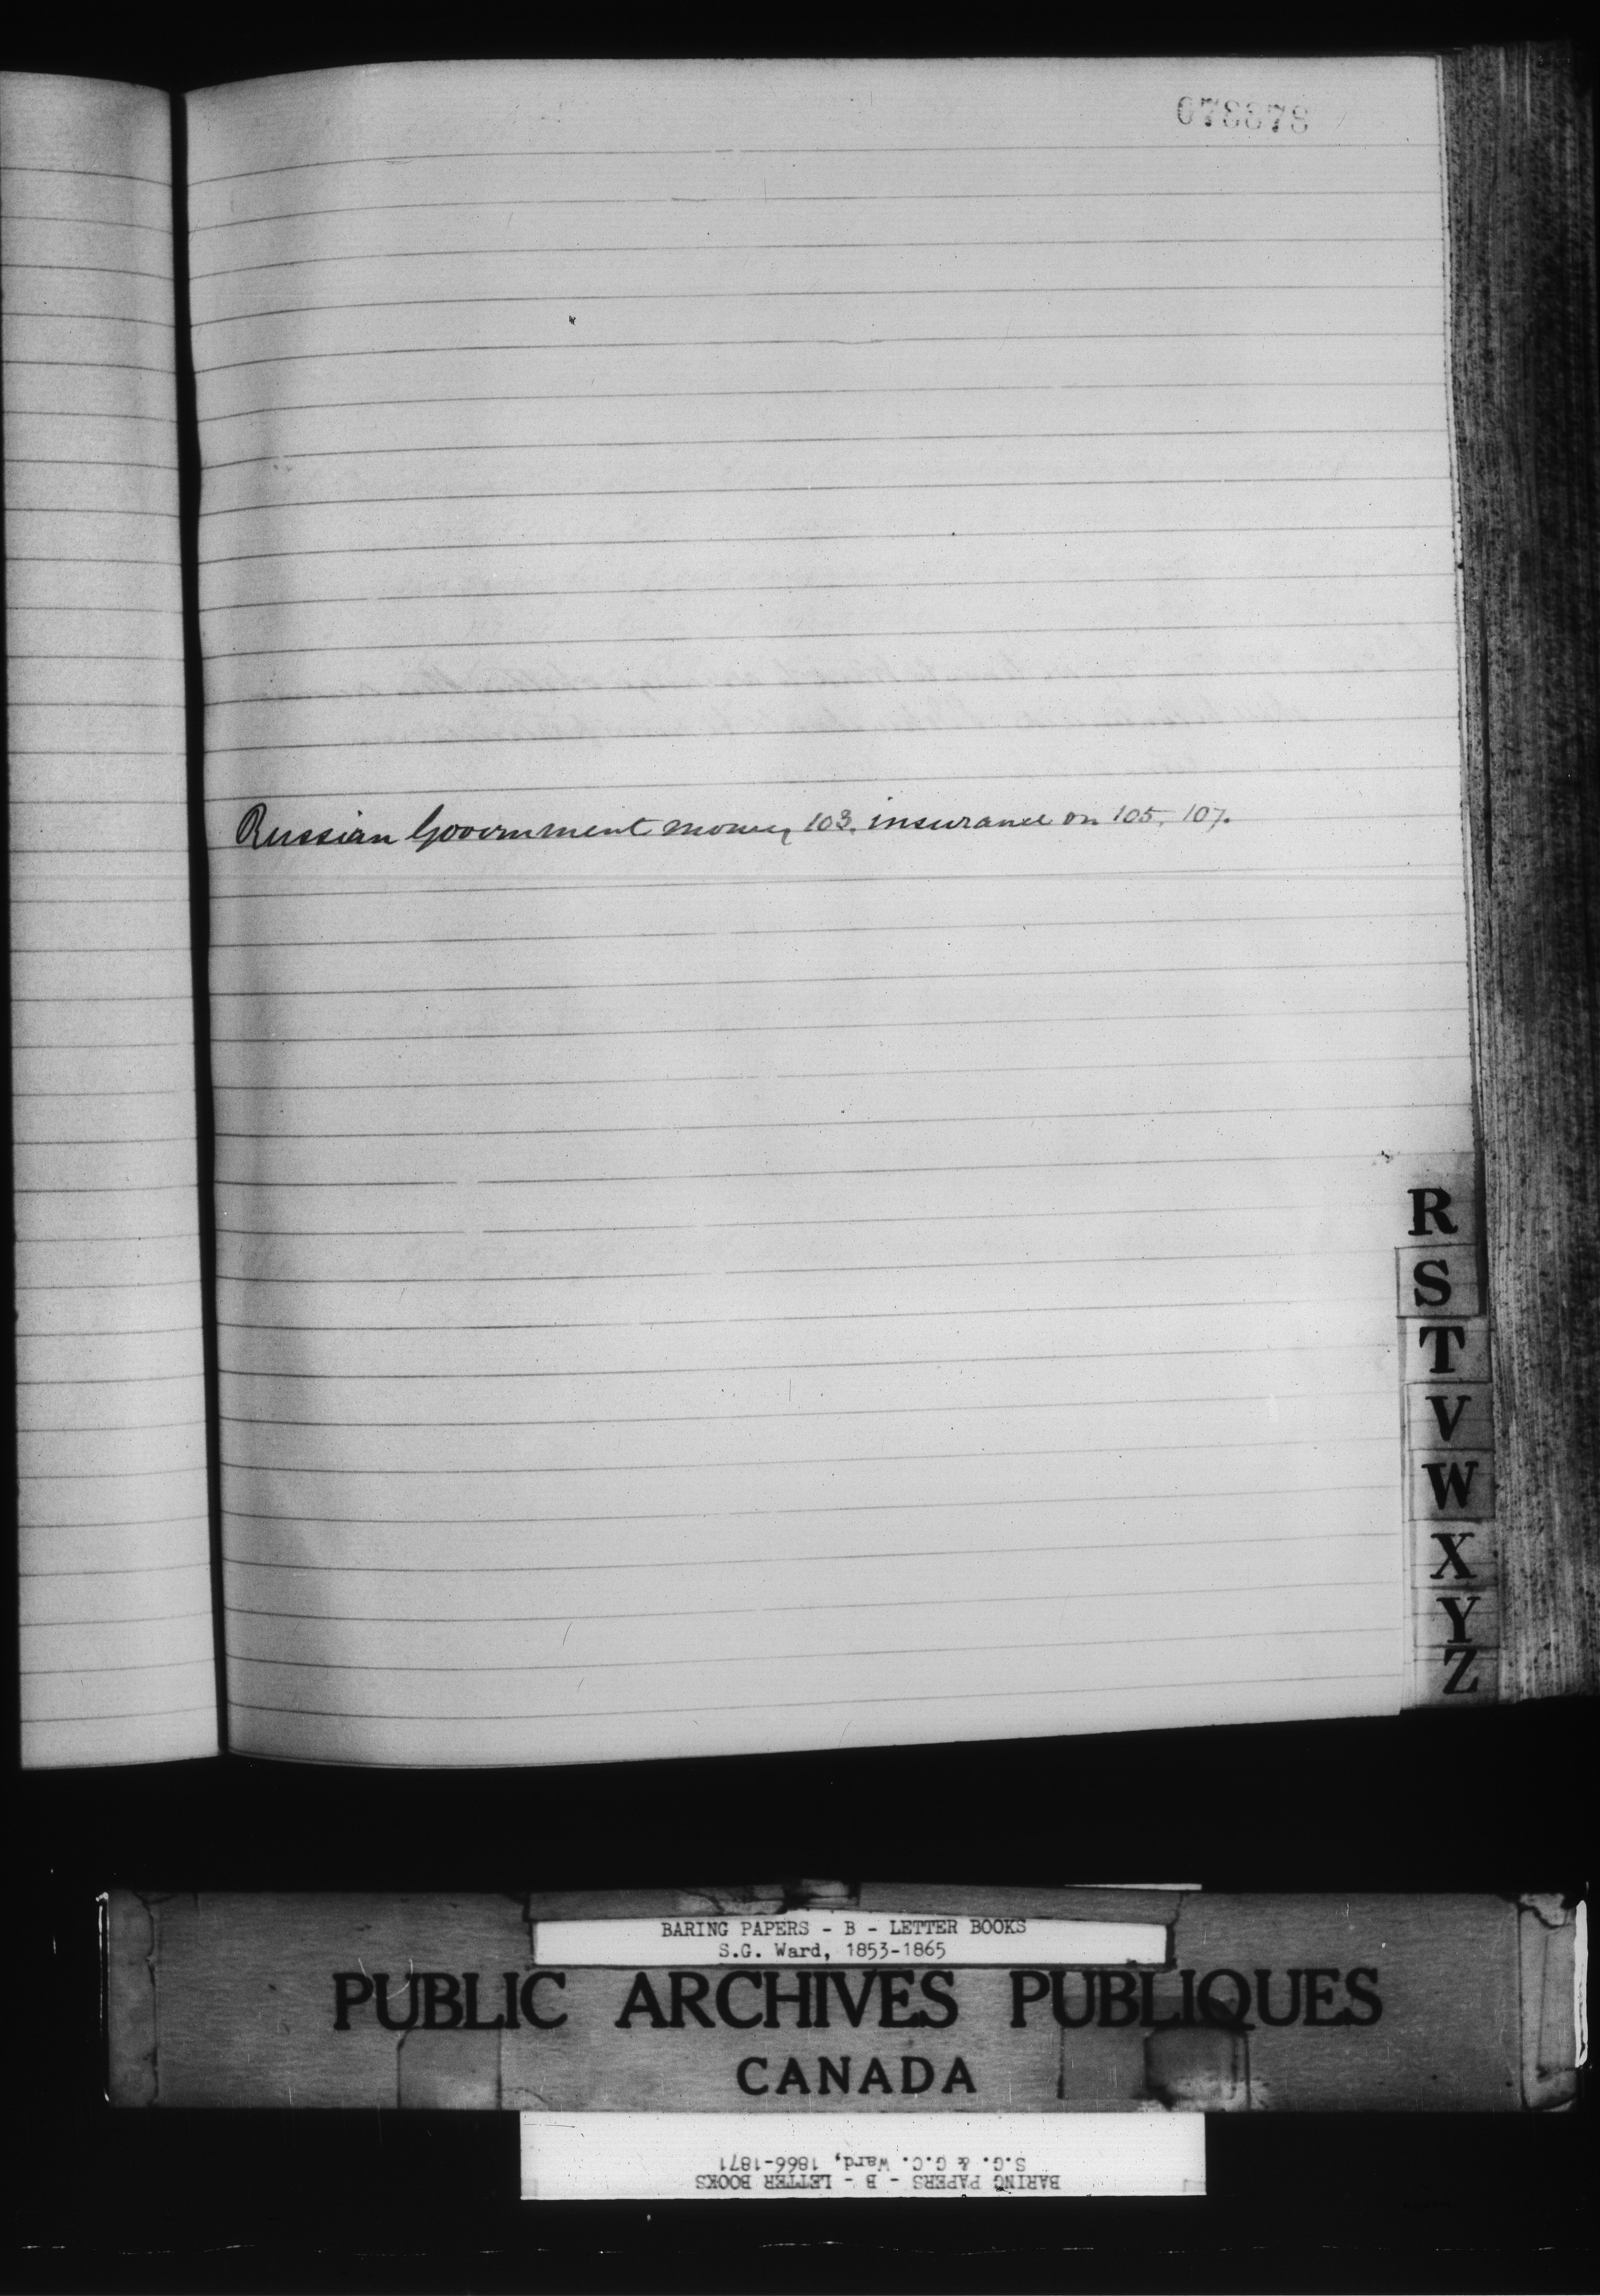 078878
Russian Government money 103. insurance on 105, 107.
R
S
T
V
W
X
Y
Z
BARING PAPERS - B - LETTER BOOKS
S.G. Ward, 1853-1865
PUBLIC ARCHIVES PUBLIQUES
CANADA
BARING PAPERS - B - LETTER BOOKS
S.G. & G.C. Ward, 1866-1871